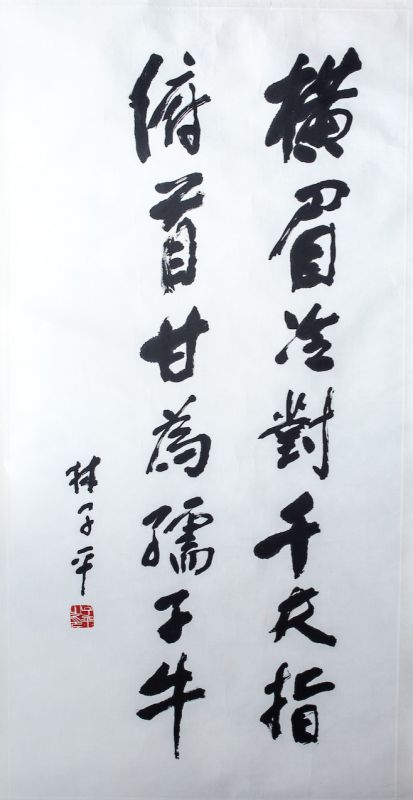 横眉冷對千夫指
俯首甘為孺子牛
林子平